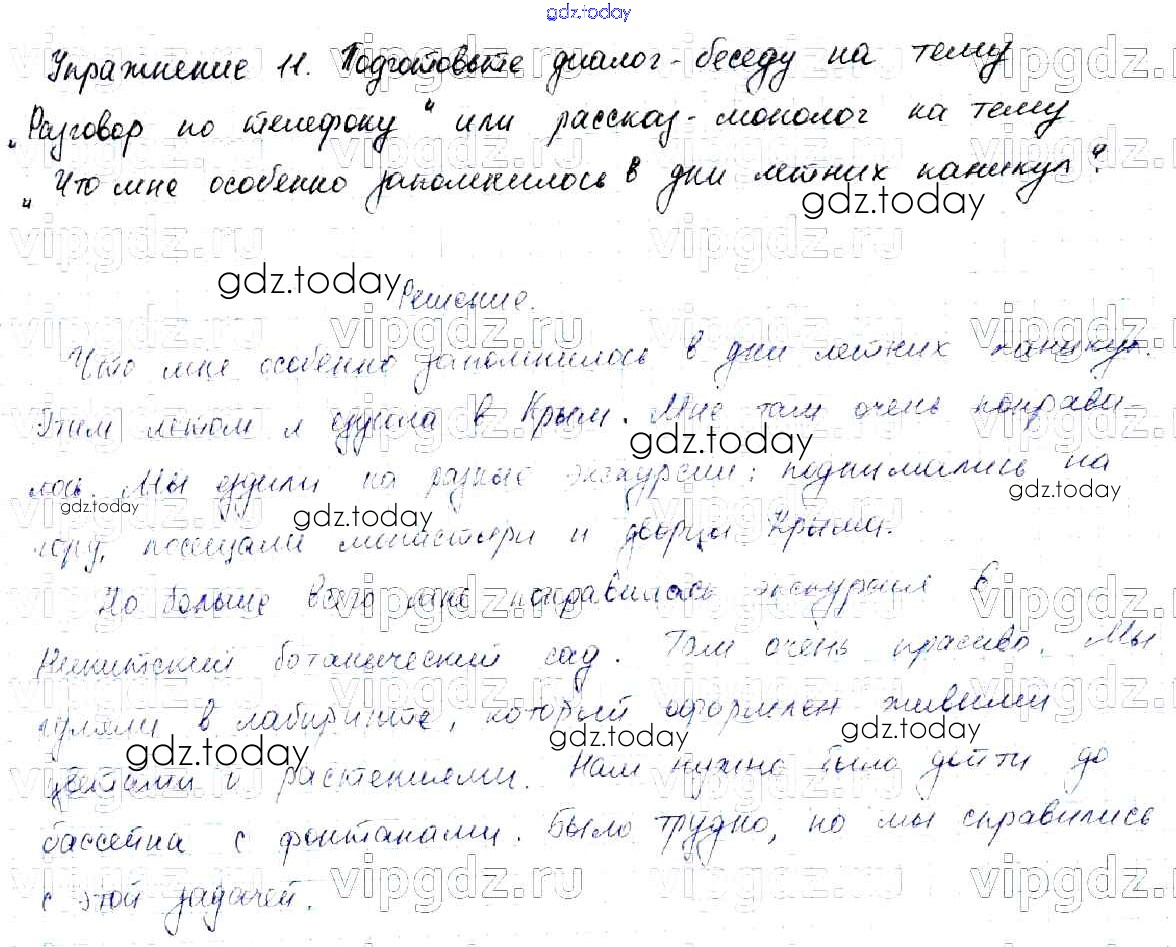 gdz.today
Упражнение 11. Подготовьте диалог-беседу на тему
„Разговор по телефону“ или рассказ-монолог на тему
„Что мне особенно запомнилось в дни летних каникул“.
Решение.
Что мне особенно запомнилось в дни летних каникул.
Этим летом я ездила в Крым. Мне там очень понрави-
лось. Мы ездили на разные экскурсии: поднимались на
гору, посещали монастыри и дворцы Крыма.
Но больше всего мне понравилась экскурсия в
Никитский ботанический сад. Там очень красиво. Мы
гуляли в лабиринте, который оформлен живыми
цветами и растениями. Нам нужно было дойти до
бассейна с фонтанами. Было трудно, но мы справились
с этой задачей.